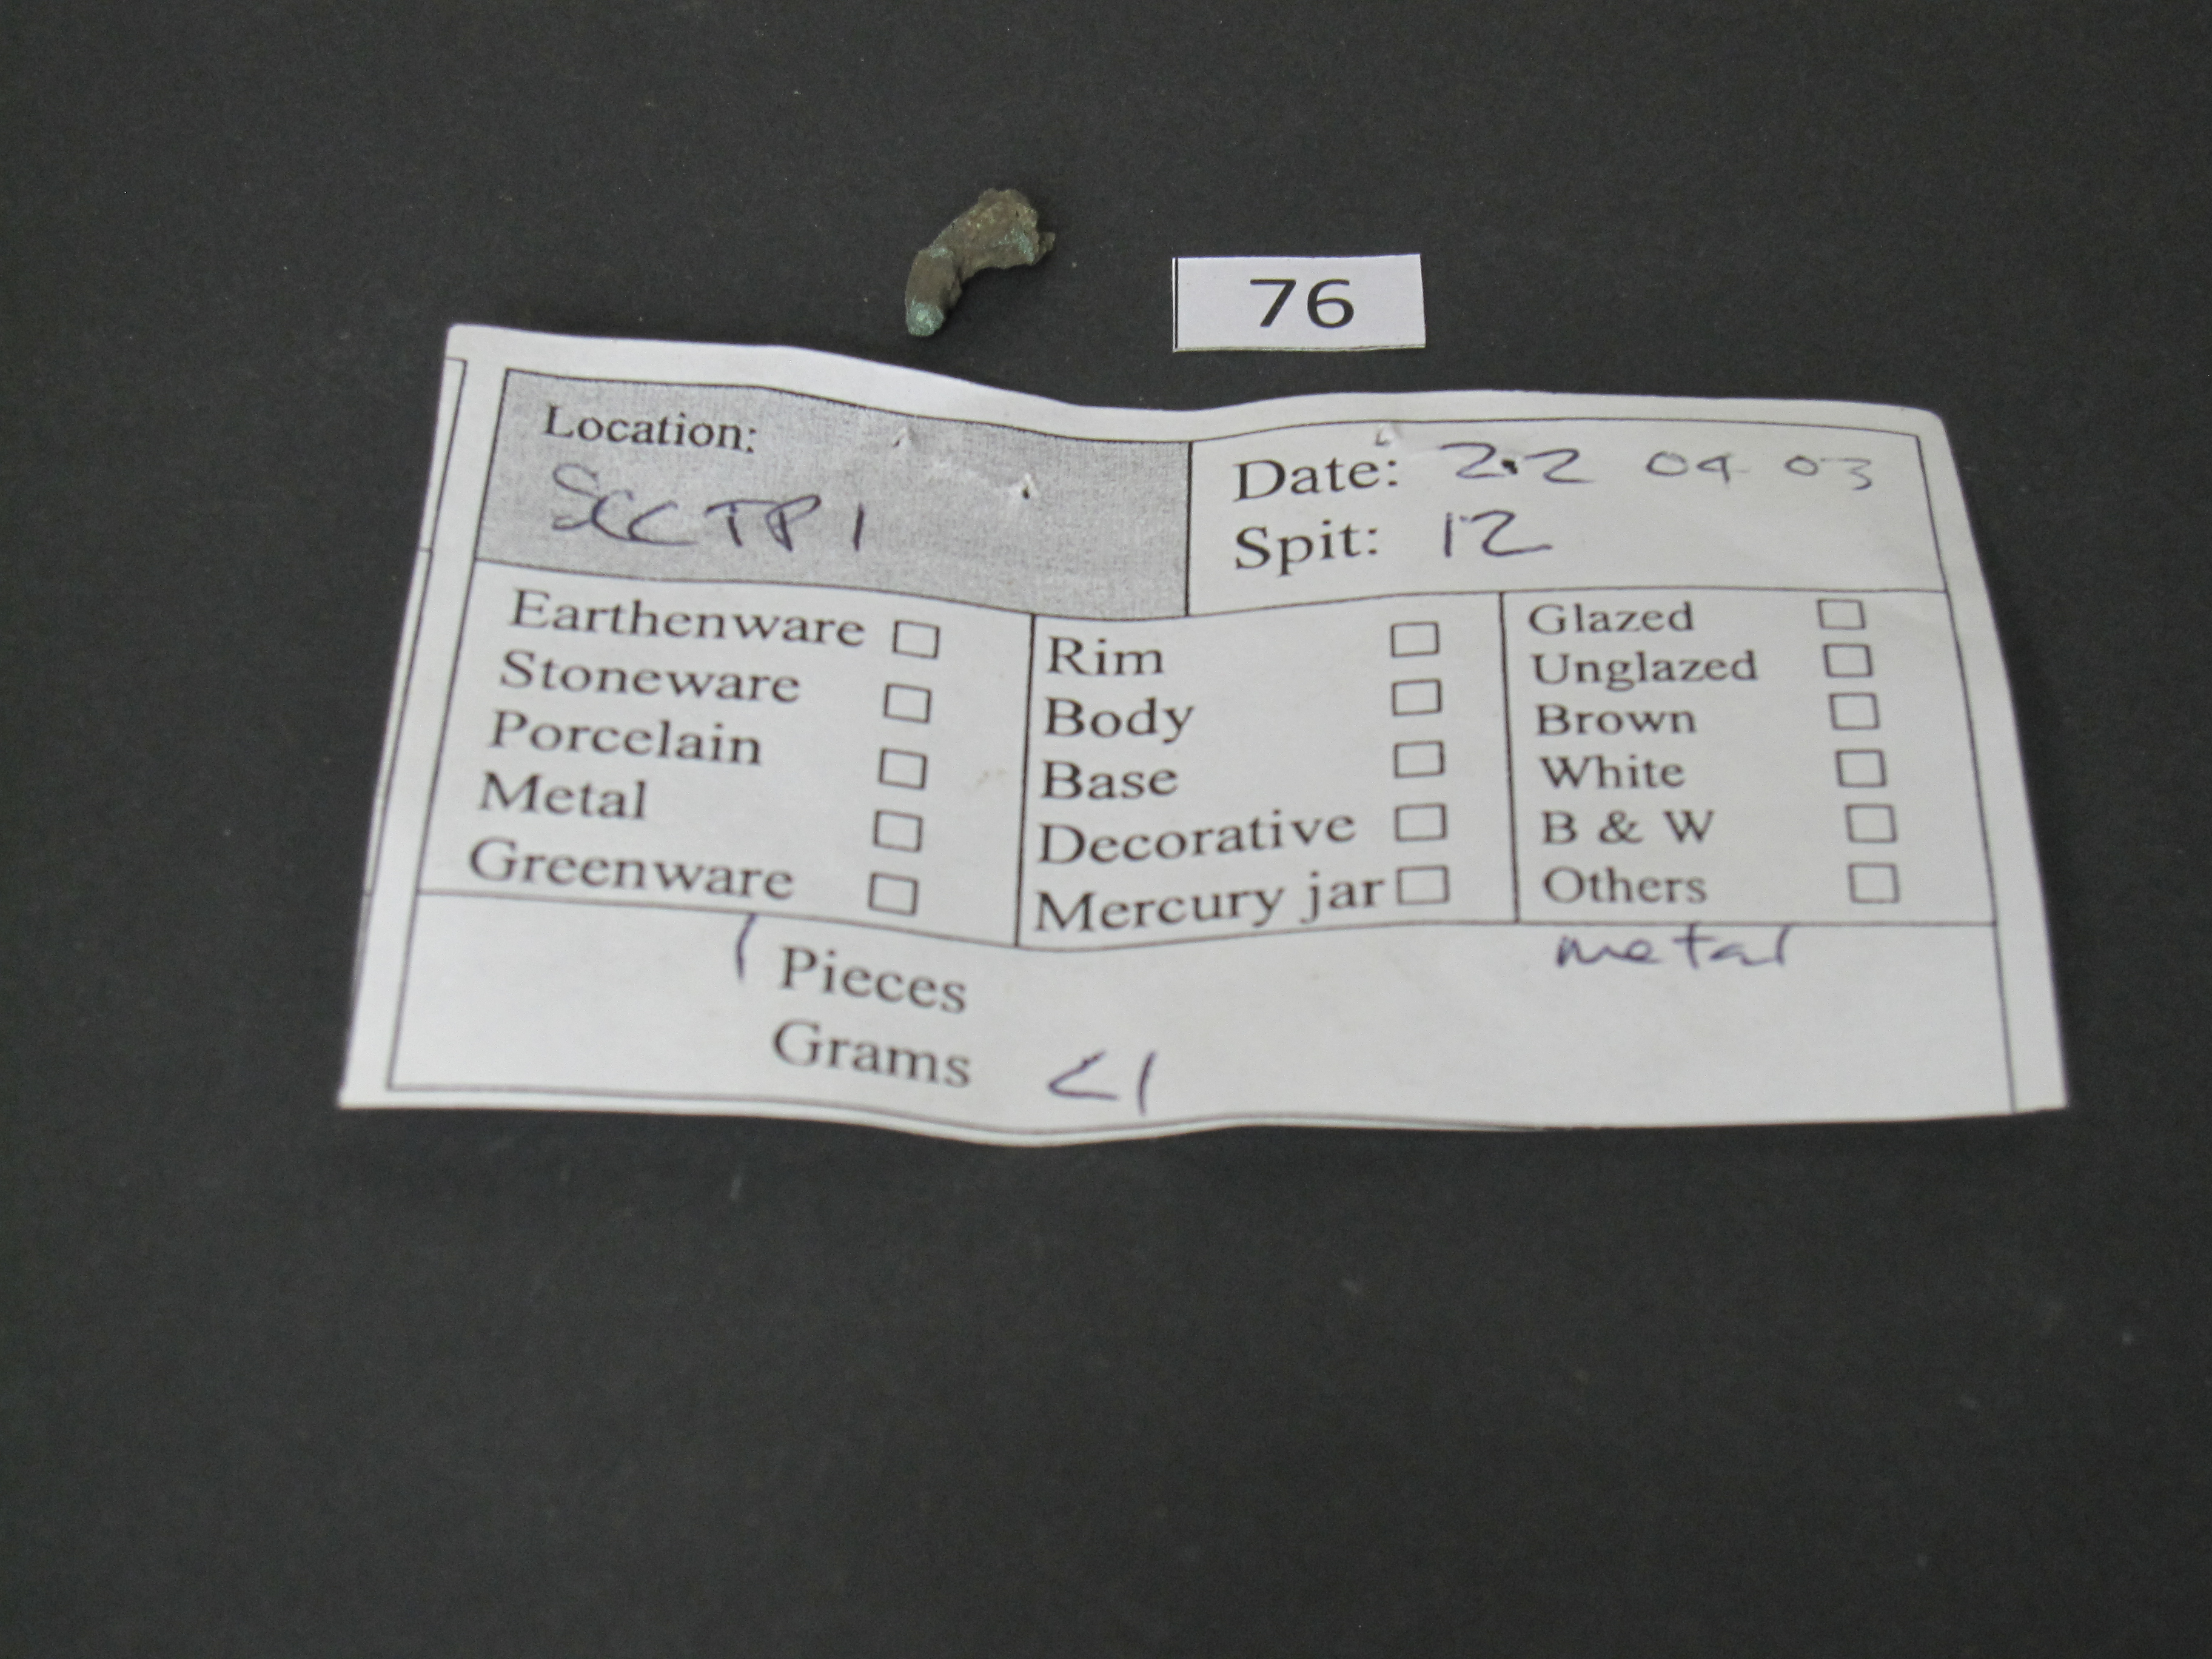 76
Location:
SCC TP 1
Date: 22 04 03
Spit: 12
Earthenware
Stoneware
Porcelain
Metal
Greenware
Rim
Body
Base
Decorative
Mercury jar
Glazed
Unglazed
Brown
White
B & W
Others
metal
1 Pieces
Grams <1